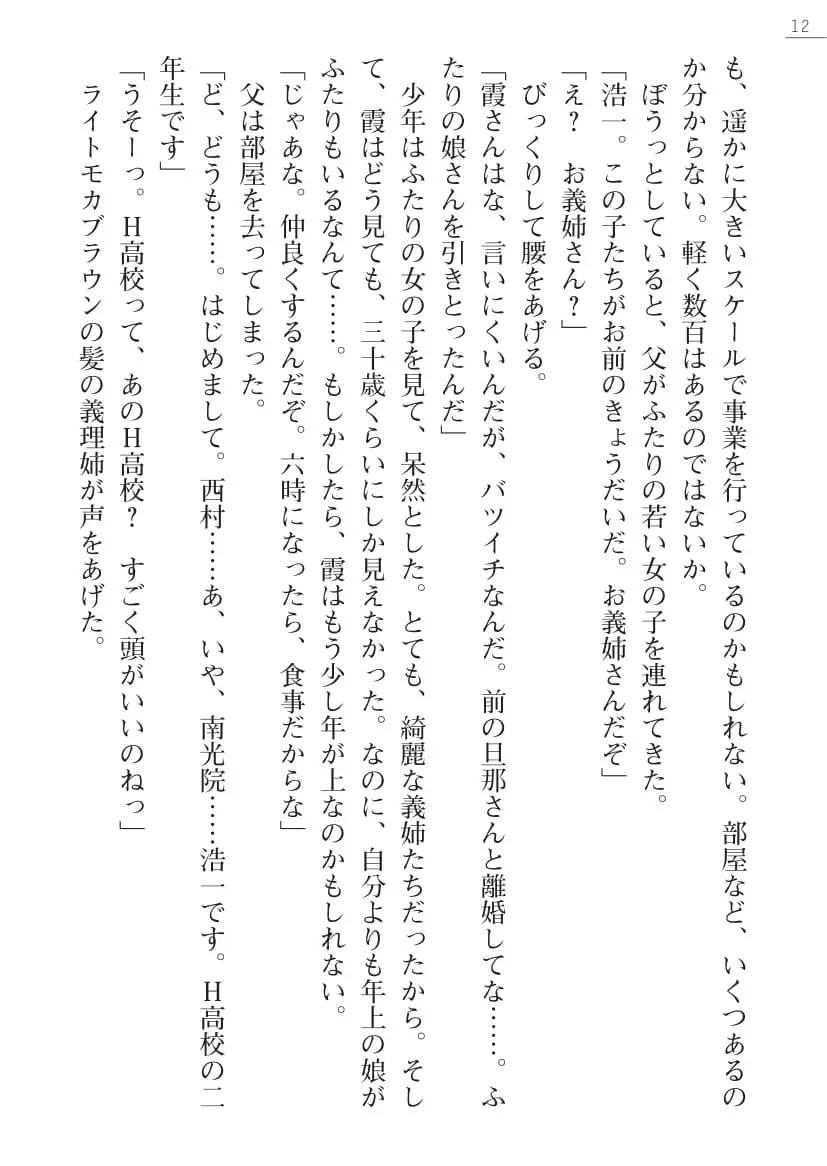 12
も、遥かに大きいスケールで事業を行っているのかもしれない。部屋など、いくつあるの
か分からない。軽く数百はあるのではないか。
　ぼうっとしていると、父がふたりの若い女の子を連れてきた。
「浩一。この子たちがお前のきょうだいだ。お義姉さんだぞ」
「え？　お義姉さん？」
　びっくりして腰をあげる。
「霞さんはな、言いにくいんだが、バツイチなんだ。前の旦那さんと離婚してな……。ふ
たりの娘さんを引きとったんだ」
　少年はふたりの女の子を見て、呆然とした。とても、綺麗な義姉たちだったから。そし
て、霞はどう見ても、三十歳くらいにしか見えなかった。なのに、自分よりも年上の娘が
ふたりもいるなんて……。もしかしたら、霞はもう少し年が上なのかもしれない。
「じゃあな。仲良くするんだぞ。六時になったら、食事だからな」
　父は部屋を去ってしまった。
「ど、どうも……。はじめまして。西村……あ、いや、南光院……浩一です。Ｈ高校の二
年生です」
「うそーっ。Ｈ高校って、あのＨ高校？　すごく頭がいいのねっ」
　ライトモカブラウンの髪の義理姉が声をあげた。